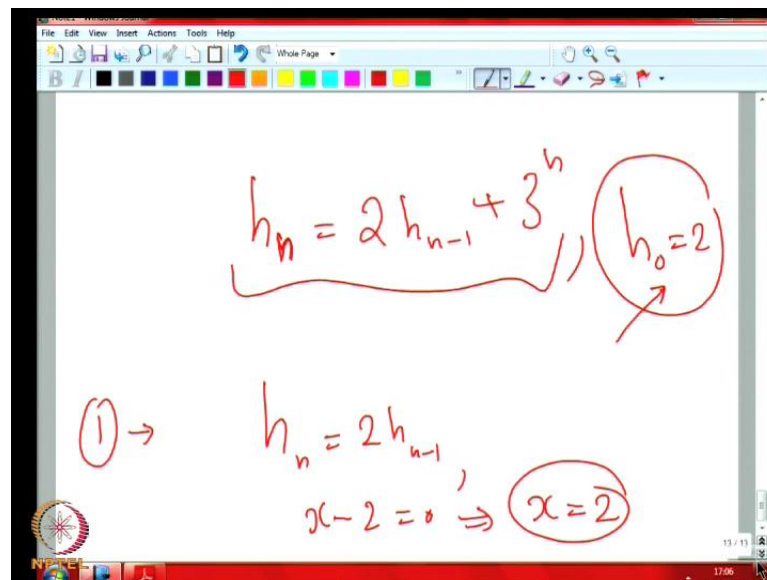 File Edit View Insert Actions Tools Help
Whole Page
B I
hₙ = 2hₙ₋₁ + 3ⁿ, h₀ = 2
① → hₙ = 2hₙ₋₁,
x - 2 = 0 ⇒ x = 2
13 / 13
NPTEL
17:06